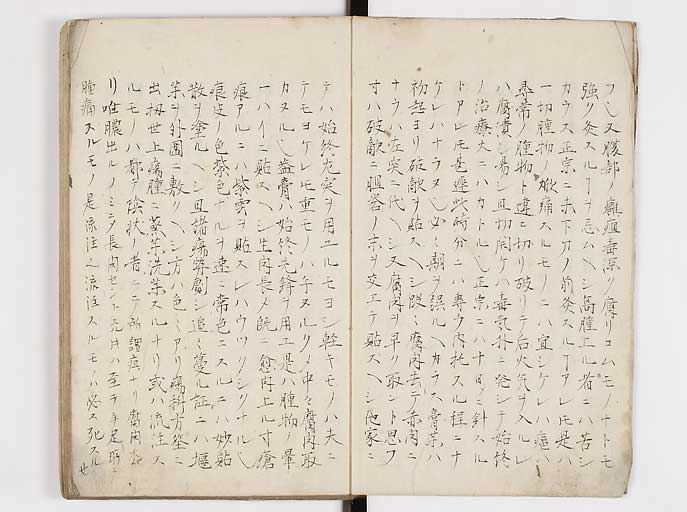 フヘシ又腹部ノ癰疽毒深ク腐リコムモノナトモ
強ク灸スルヿヲ忌ムヘシ高腫上ル者ニハ苦シ
カラス正宗ニ未下刀ノ前灸スルヿアレ𪜈是ハ
一切腫物ノ焮痛スルモノニハ宜シケレ𪜈癰ハ
尋常ノ腫物ト違ニ切リ破リテ后火气ヲ入ルレ
ハ腐潰シ易シ且切開ケハ毒気外ニ発シテ始終
ノ治療大ニハカトル也正宗ニハ十日メニ針スル
トアレ𪜈甚遅此時分ニハ専ラ内托スル程ニナ
ケレハナラヌ也必ス期ヲ誤ルヘカラス膏薬ハ
初起ヨリ破敵ヲ貼スヘシ際ニ腐肉去テ赤肉ニ
ナラハ左突ニ代ヘシ又腐肉ヲ早ク取ント思フ
寸ハ破敵ニ胆礬ノ末ヲ交エテ貼スヘシ他家ニ
テハ始終左突ヲ用エルモヨシ軽キモノハ夫ニ
テモヨケレ𪜈重モノハ手ヌルクメ中々腐肉取
カヌル也益膏ハ始終元鋒ヲ用エ是ハ腫物ノ暈
一ハイニ貼スヘシ生肉長メ既ニ愈肉上ル寸瘡
痕アルニハ紫雲ヲ貼スレハウツクシクナル也
痕皮ノ色紫色ナルヲ速ニ常色ニスルニハ妙貼
散ヲ塗ルヘシ且諸瘍弊劇シ追々蔓ル証ニハ堰
薬ヲ外囲ニ敷クヘシ方ハ色々アリ瘍科方筌ニ
出扨世上瘍腫ニ蒸薬洗薬スルナリ或ハ流注ス
ルモノハ都テ陰状ノ者ニテ所謂疽ナリ腐肉
リ唯膿出ルノミ
腫痛スルモノ是流注也流注スルモノハ必ス死スル